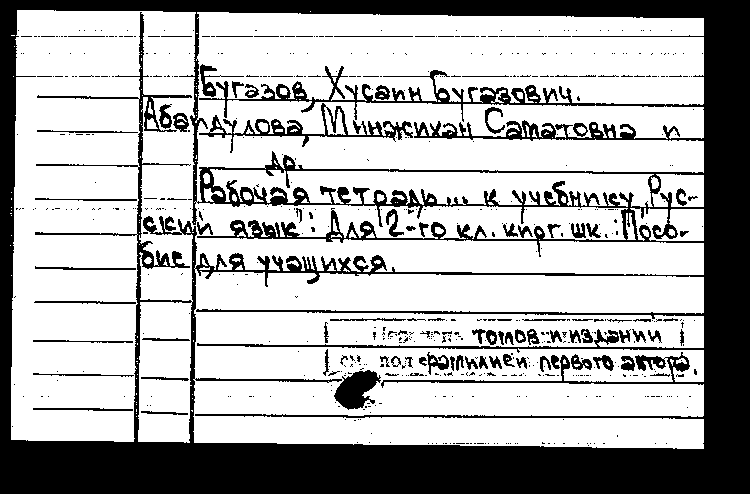 Бугазов, Хусаин Бугазович.
Абандулова, Минжихан Саматовна и
др.
Рабочая тетрадь... к учебнику „Рус-
ский язык": Для 2-го кл. кирг. шк.: Посо-
бие для учащихся.
Перечень томов и изданий
см. под фамилией первого автора.